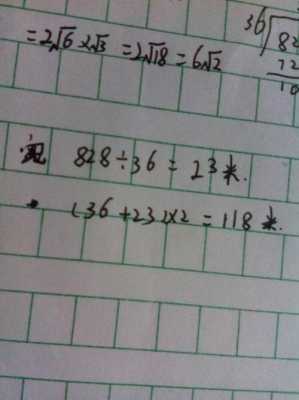 =2√6×√3 =2√18=6√2
36√82
72
10
828÷36=23米.
(36+23)×2=118米.